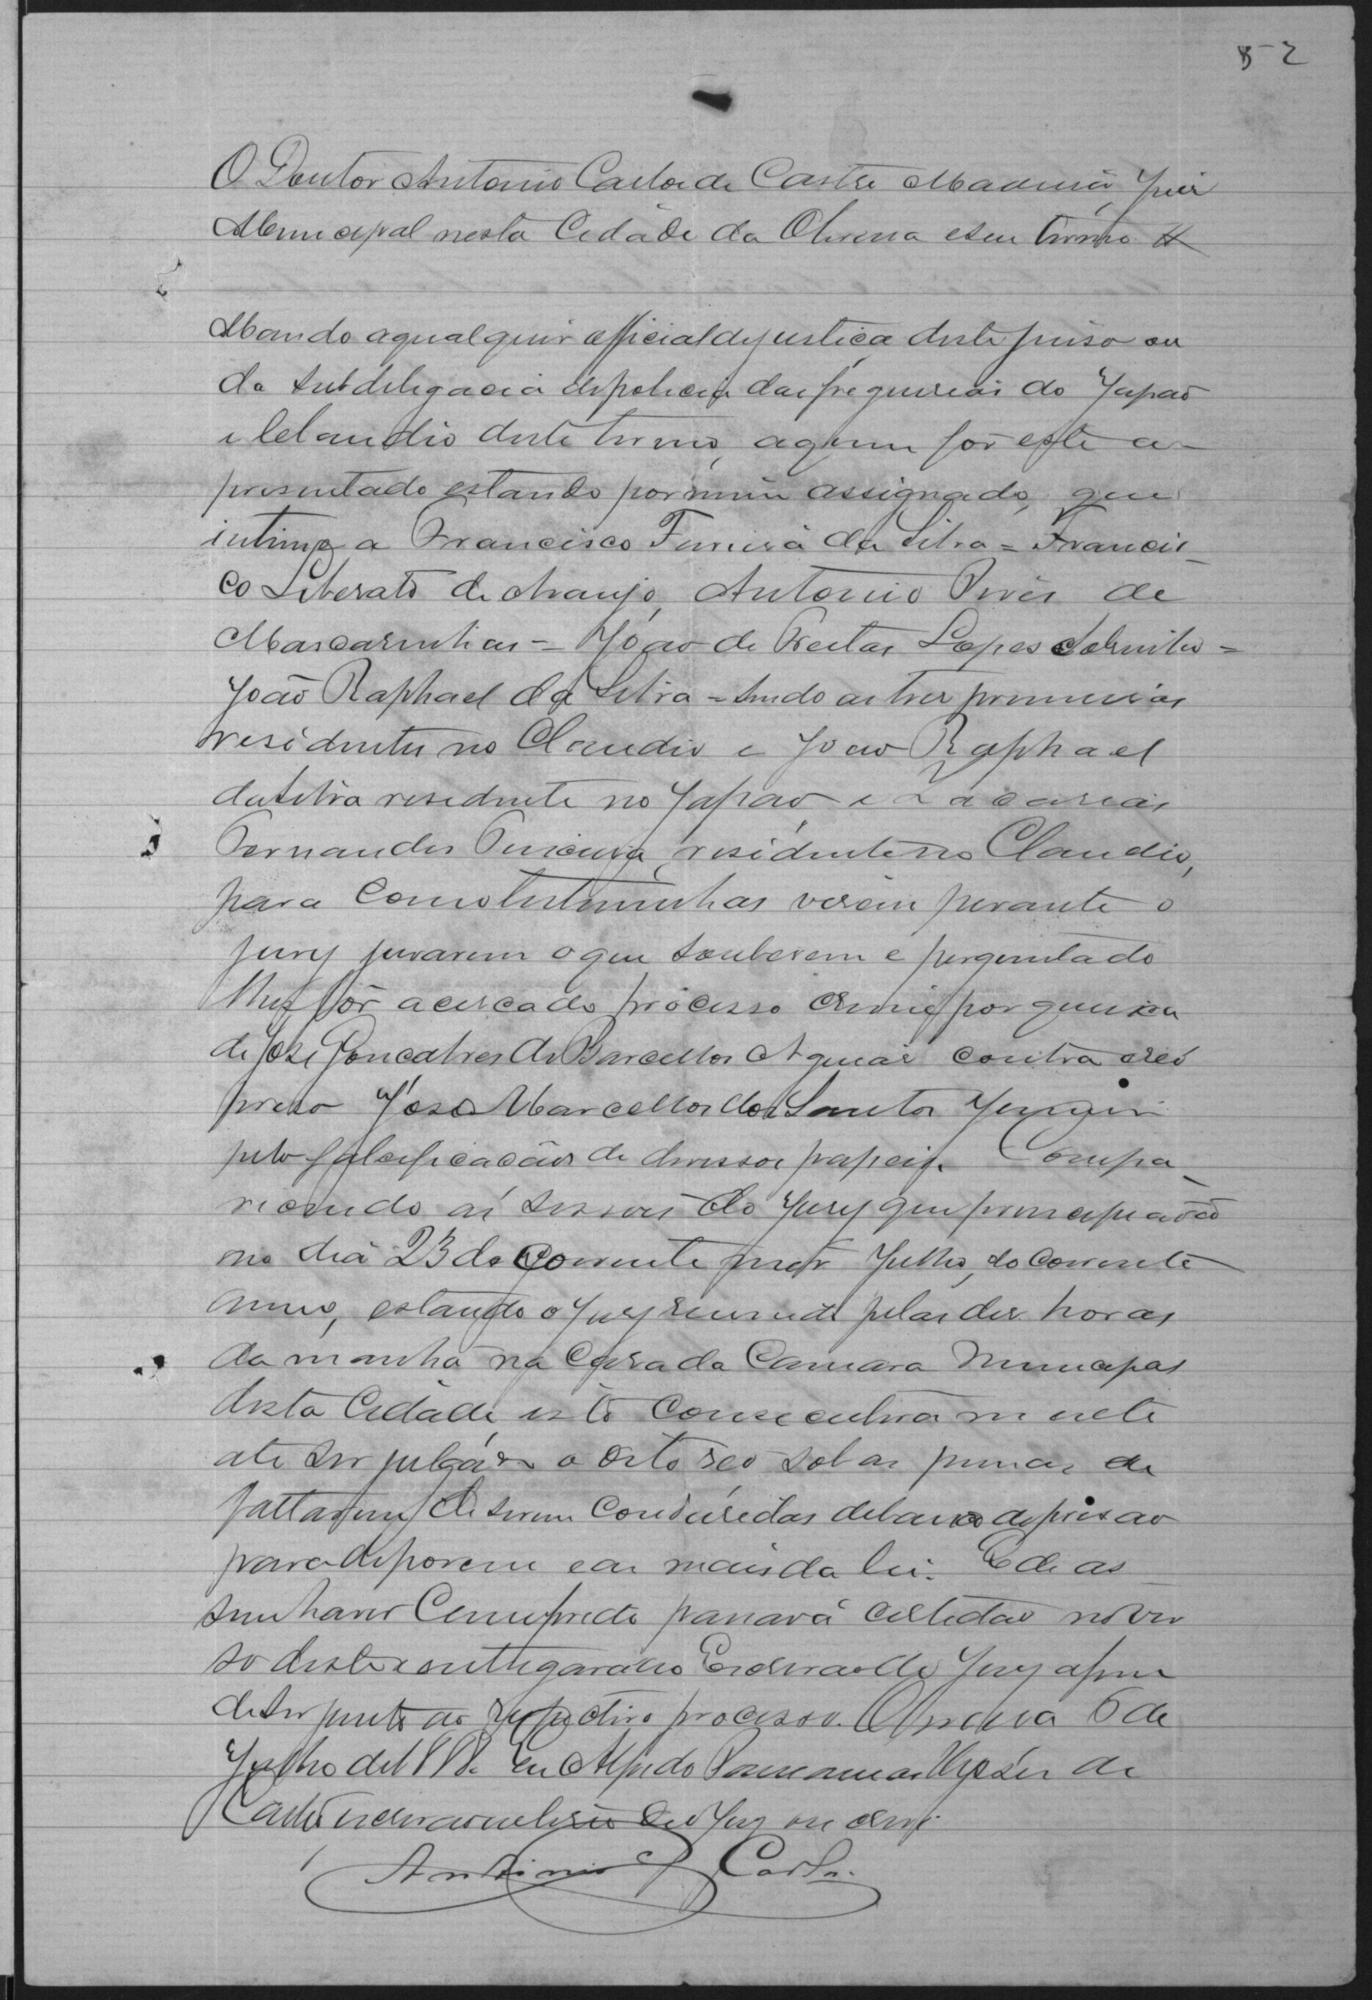 52
O Doutor Antonio Carlos de Castro Madureira, Juiz
Municipal nesta Cidade da Oliveira e seu termo &
Mando a qualquer official de justiça deste juiso ou
da subdelegacia de policia das freguesias do Japão
e Claudio deste termo, a quem for este a-
presentado estando por mim assignado, que
intime a Francisco Ferreira da Silva = Francis-
co Liberato de Araujo, Antonio Pires de
Mascarenhas = João de Freitas Lopes =
João Raphael da Silva = sendo as tres primeiras
residentes no Claudio e João Raphael
da Silva residente no Japão e Zacarias
Fernandes residente no Claudio,
para como testemunhas virem perante o
jury jurarem o que souberem e perguntado
lhes for acerca do processo crime por queixa
de José Goncalves de Barcellos Aguiar contra o reo
preso José Marcellos dos Santos
pelo falsificacãos de diversos papeis. Compa-
recendo as sessões do Jury que principiarão
no dia 23 do corrente mez Julho, do corrente
anno, estando o Jury reunido pelas dez horas
da manhã na Casa da Camara Municipal
desta Cidade, isto consecutivamente
até ser julgado o dito reo sob as penas de
faltarem de serem conduzidas debaixo de prisão
para deporem e as mais da lei. E de as-
sim haver cumprido passará certidão no ver
so deste e entregará ao Escrivão do Jury afim
de ser junto ao respectivo processo. Oliveira 6 de
Julho de 1888. Eu Alfredo de
Castro escrivão do Jury o escrevi
Antonio Carlos